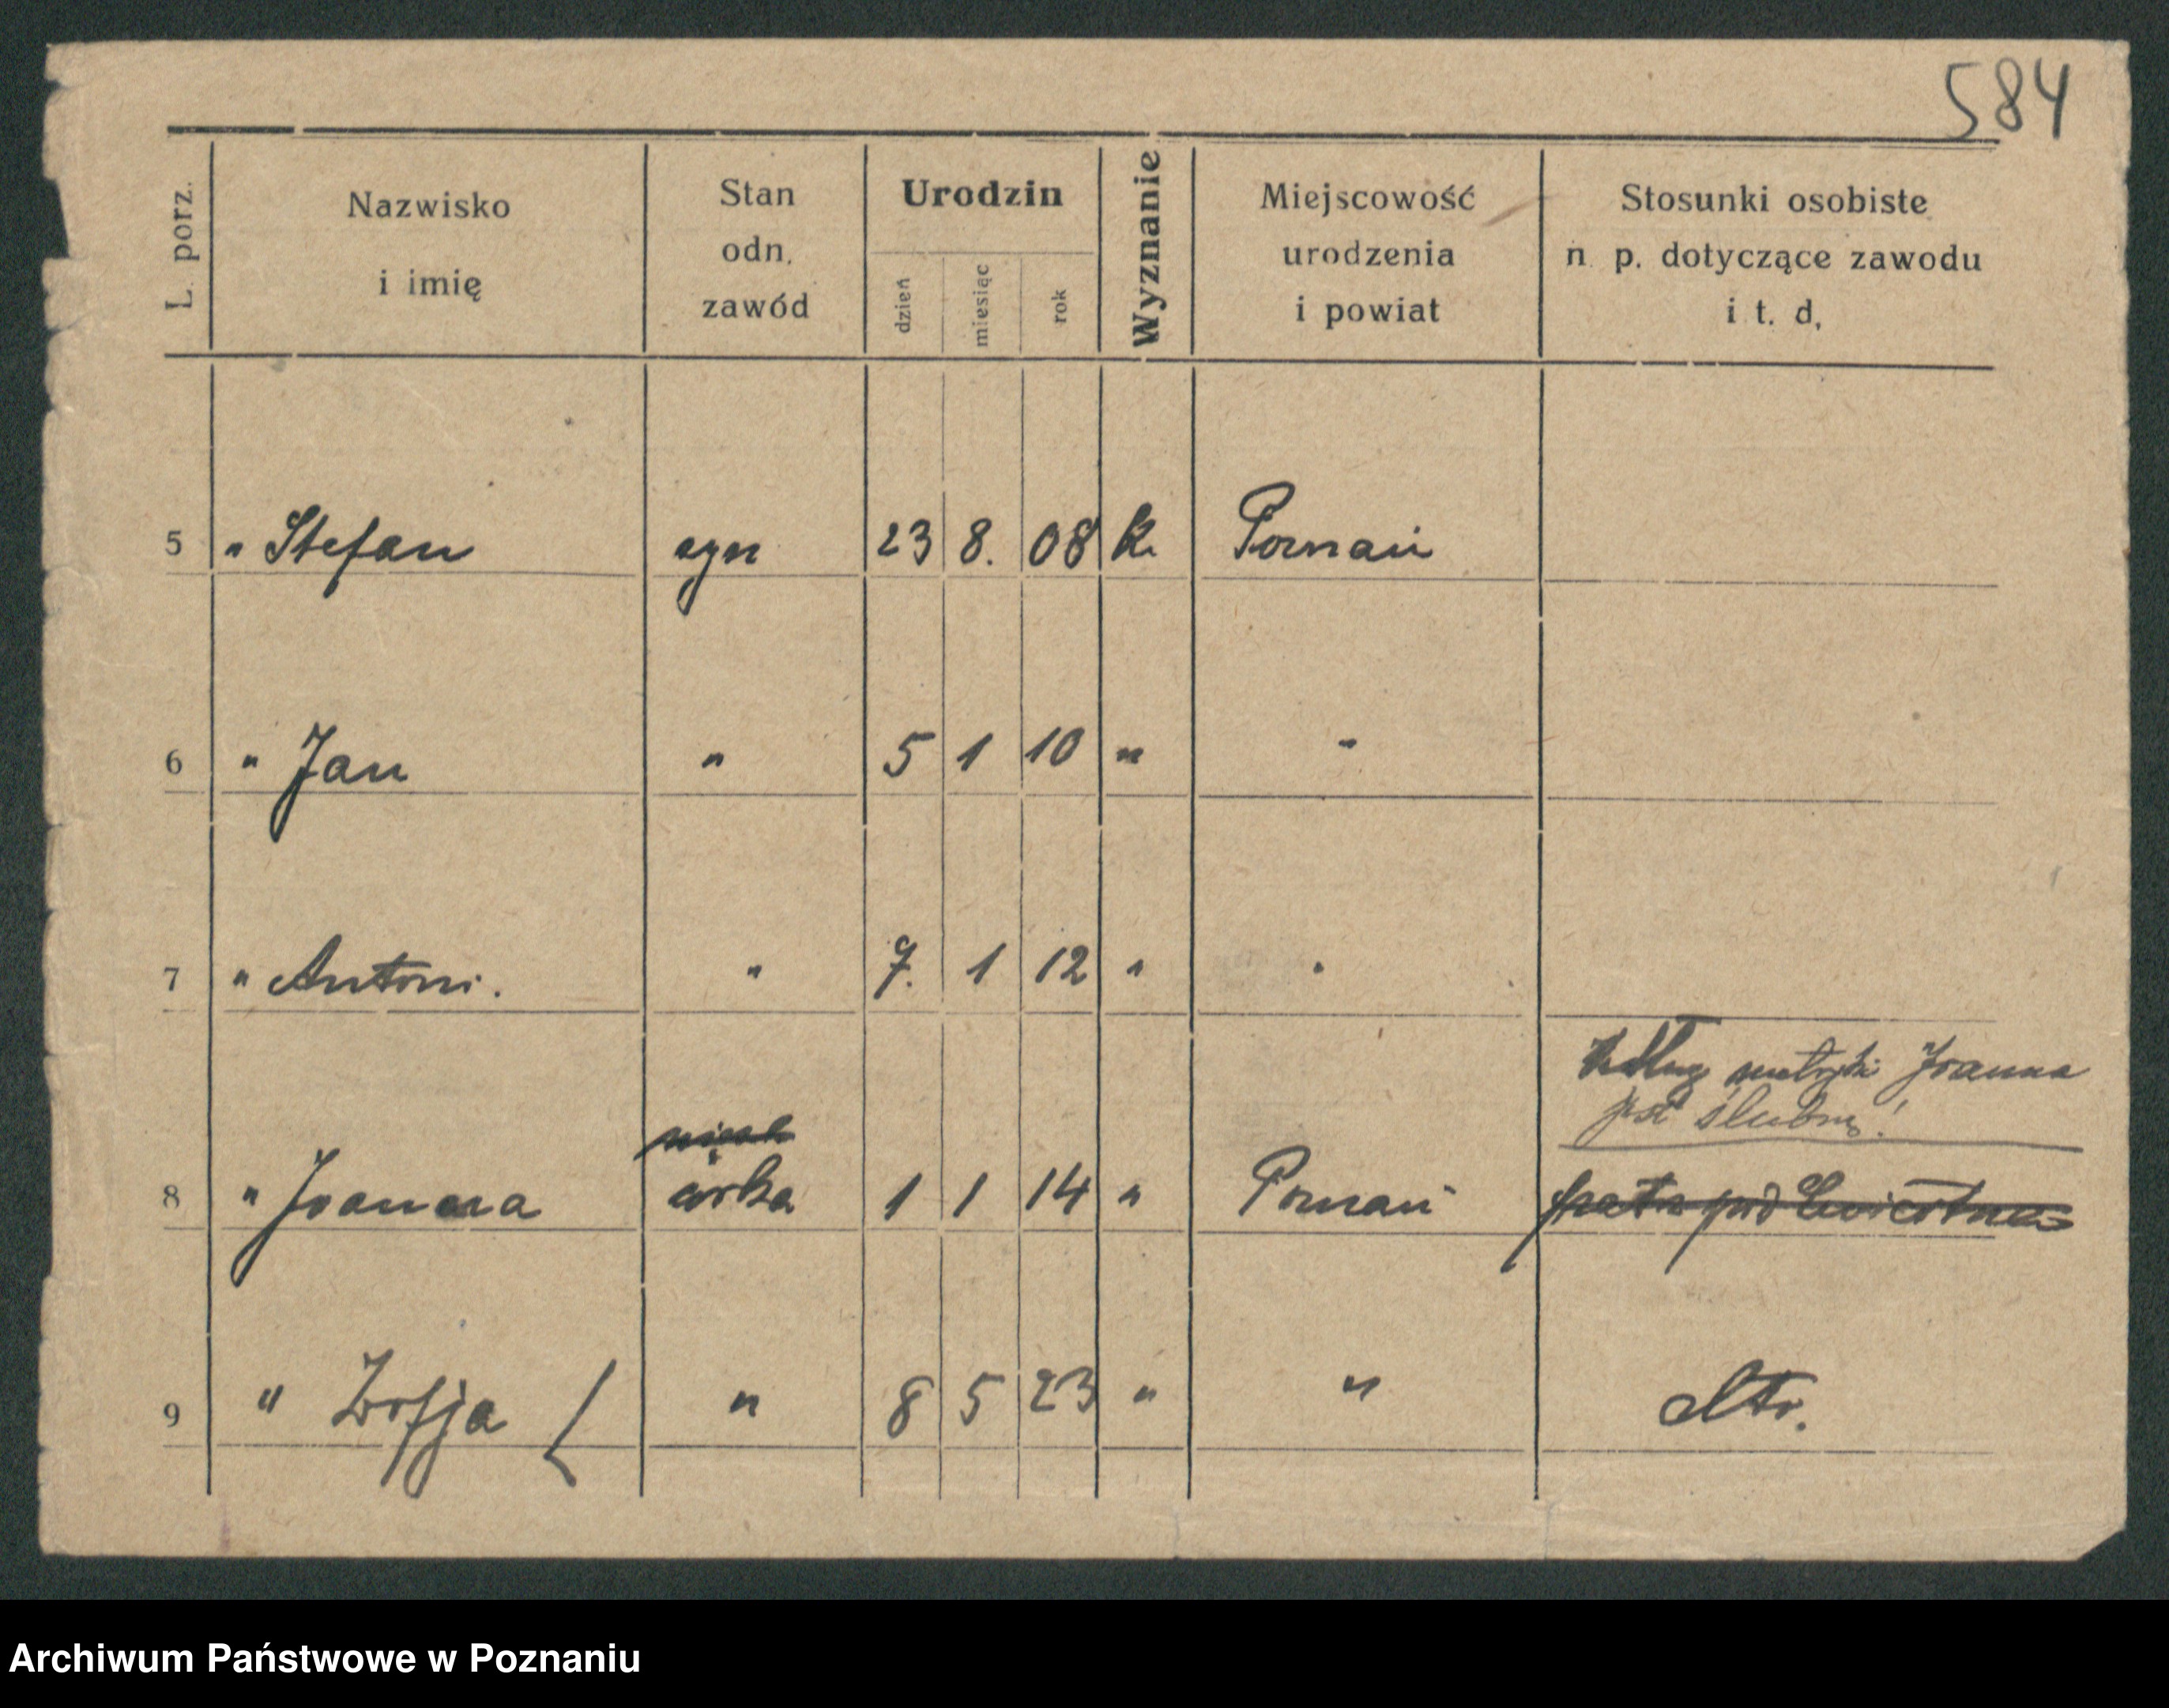 584
L. porz.
Nazwisko
i imię
Stan
odn.
zawód
Urodzin
dzień
miesiąc
rok
Wyznanie
Miejscowość
urodzenia
i powiat
Stosunki osobiste
n. p. dotyczące zawodu
i t. d.
5 " Stefan syn 23 8. 08 k. Poznań
6 " Jan " 5 1 10 " "
7 " Antoni. " 7. 1 12 " "
Według metryki Joanna
jest ślubną!
8 " Joanna córka 1 1 14 " Poznań
9 " Zofja " 8 5 23 " "
Archiwum Państwowe w Poznaniu